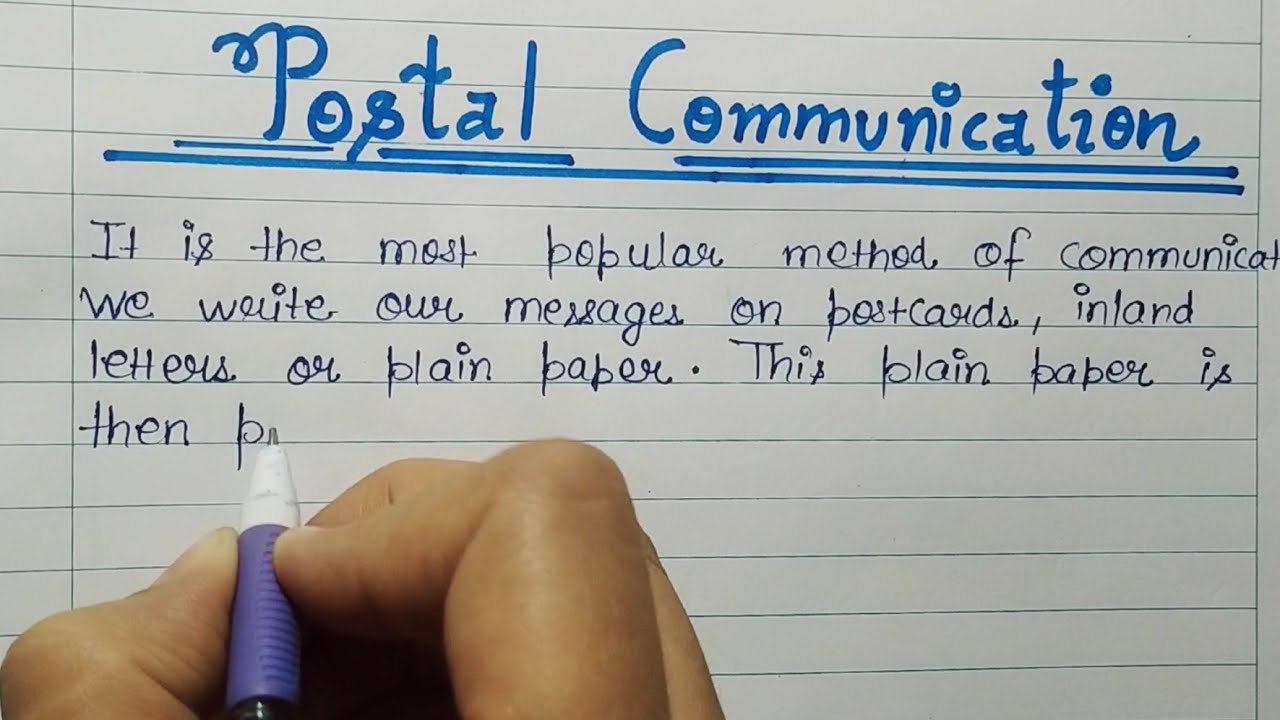 Postal Communication
It is the most popular method of communicat
We write our messages on postcards, inland
letters or plain paper. This plain paper is
then p